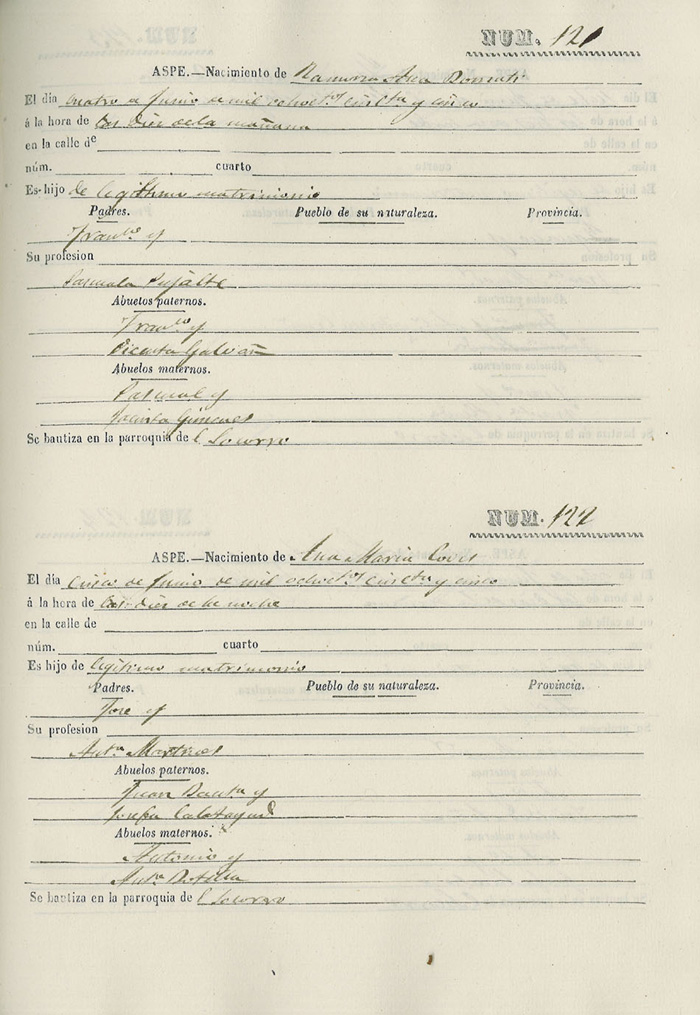 NUM. 121
ASPE.—Nacimiento de Ramona Ana
El dia cuatro de Junio de mil ochocᵗᵒˢ cincᵗᵃ y cinco
á la hora de las diez de la mañana
en la calle de
núm. cuarto
Es hijo de legithmo matrimonio
Padres. Pueblo de su naturaleza. Provincia.
Franᶜᵒ y
Su profesion
Pascuala Pujalte
Abuelos paternos.
Franᶜᵒ y
Vicenta Galvañ
Abuelos maternos.
Pascual y
Jacinta Gimenez
Se bautiza en la parroquia de l Socorro
NUM. 122
ASPE.—Nacimiento de Ana Maria Cover
El dia cinco de Junio de mil ochocᵗᵒˢ cincᵗᵃ y cinco
á la hora de las diez de la noche
en la calle de
núm. cuarto
Es hijo de legithmo matrimonio
Padres. Pueblo de su naturaleza. Provincia.
Jose y
Su profesion
Antᵃ Martinez
Abuelos paternos.
Juan Bautᵃ y
Josefa Calatayud
Abuelos maternos.
Antonio y
Antᵃ Botella
Se bautiza en la parroquia de l Socorro